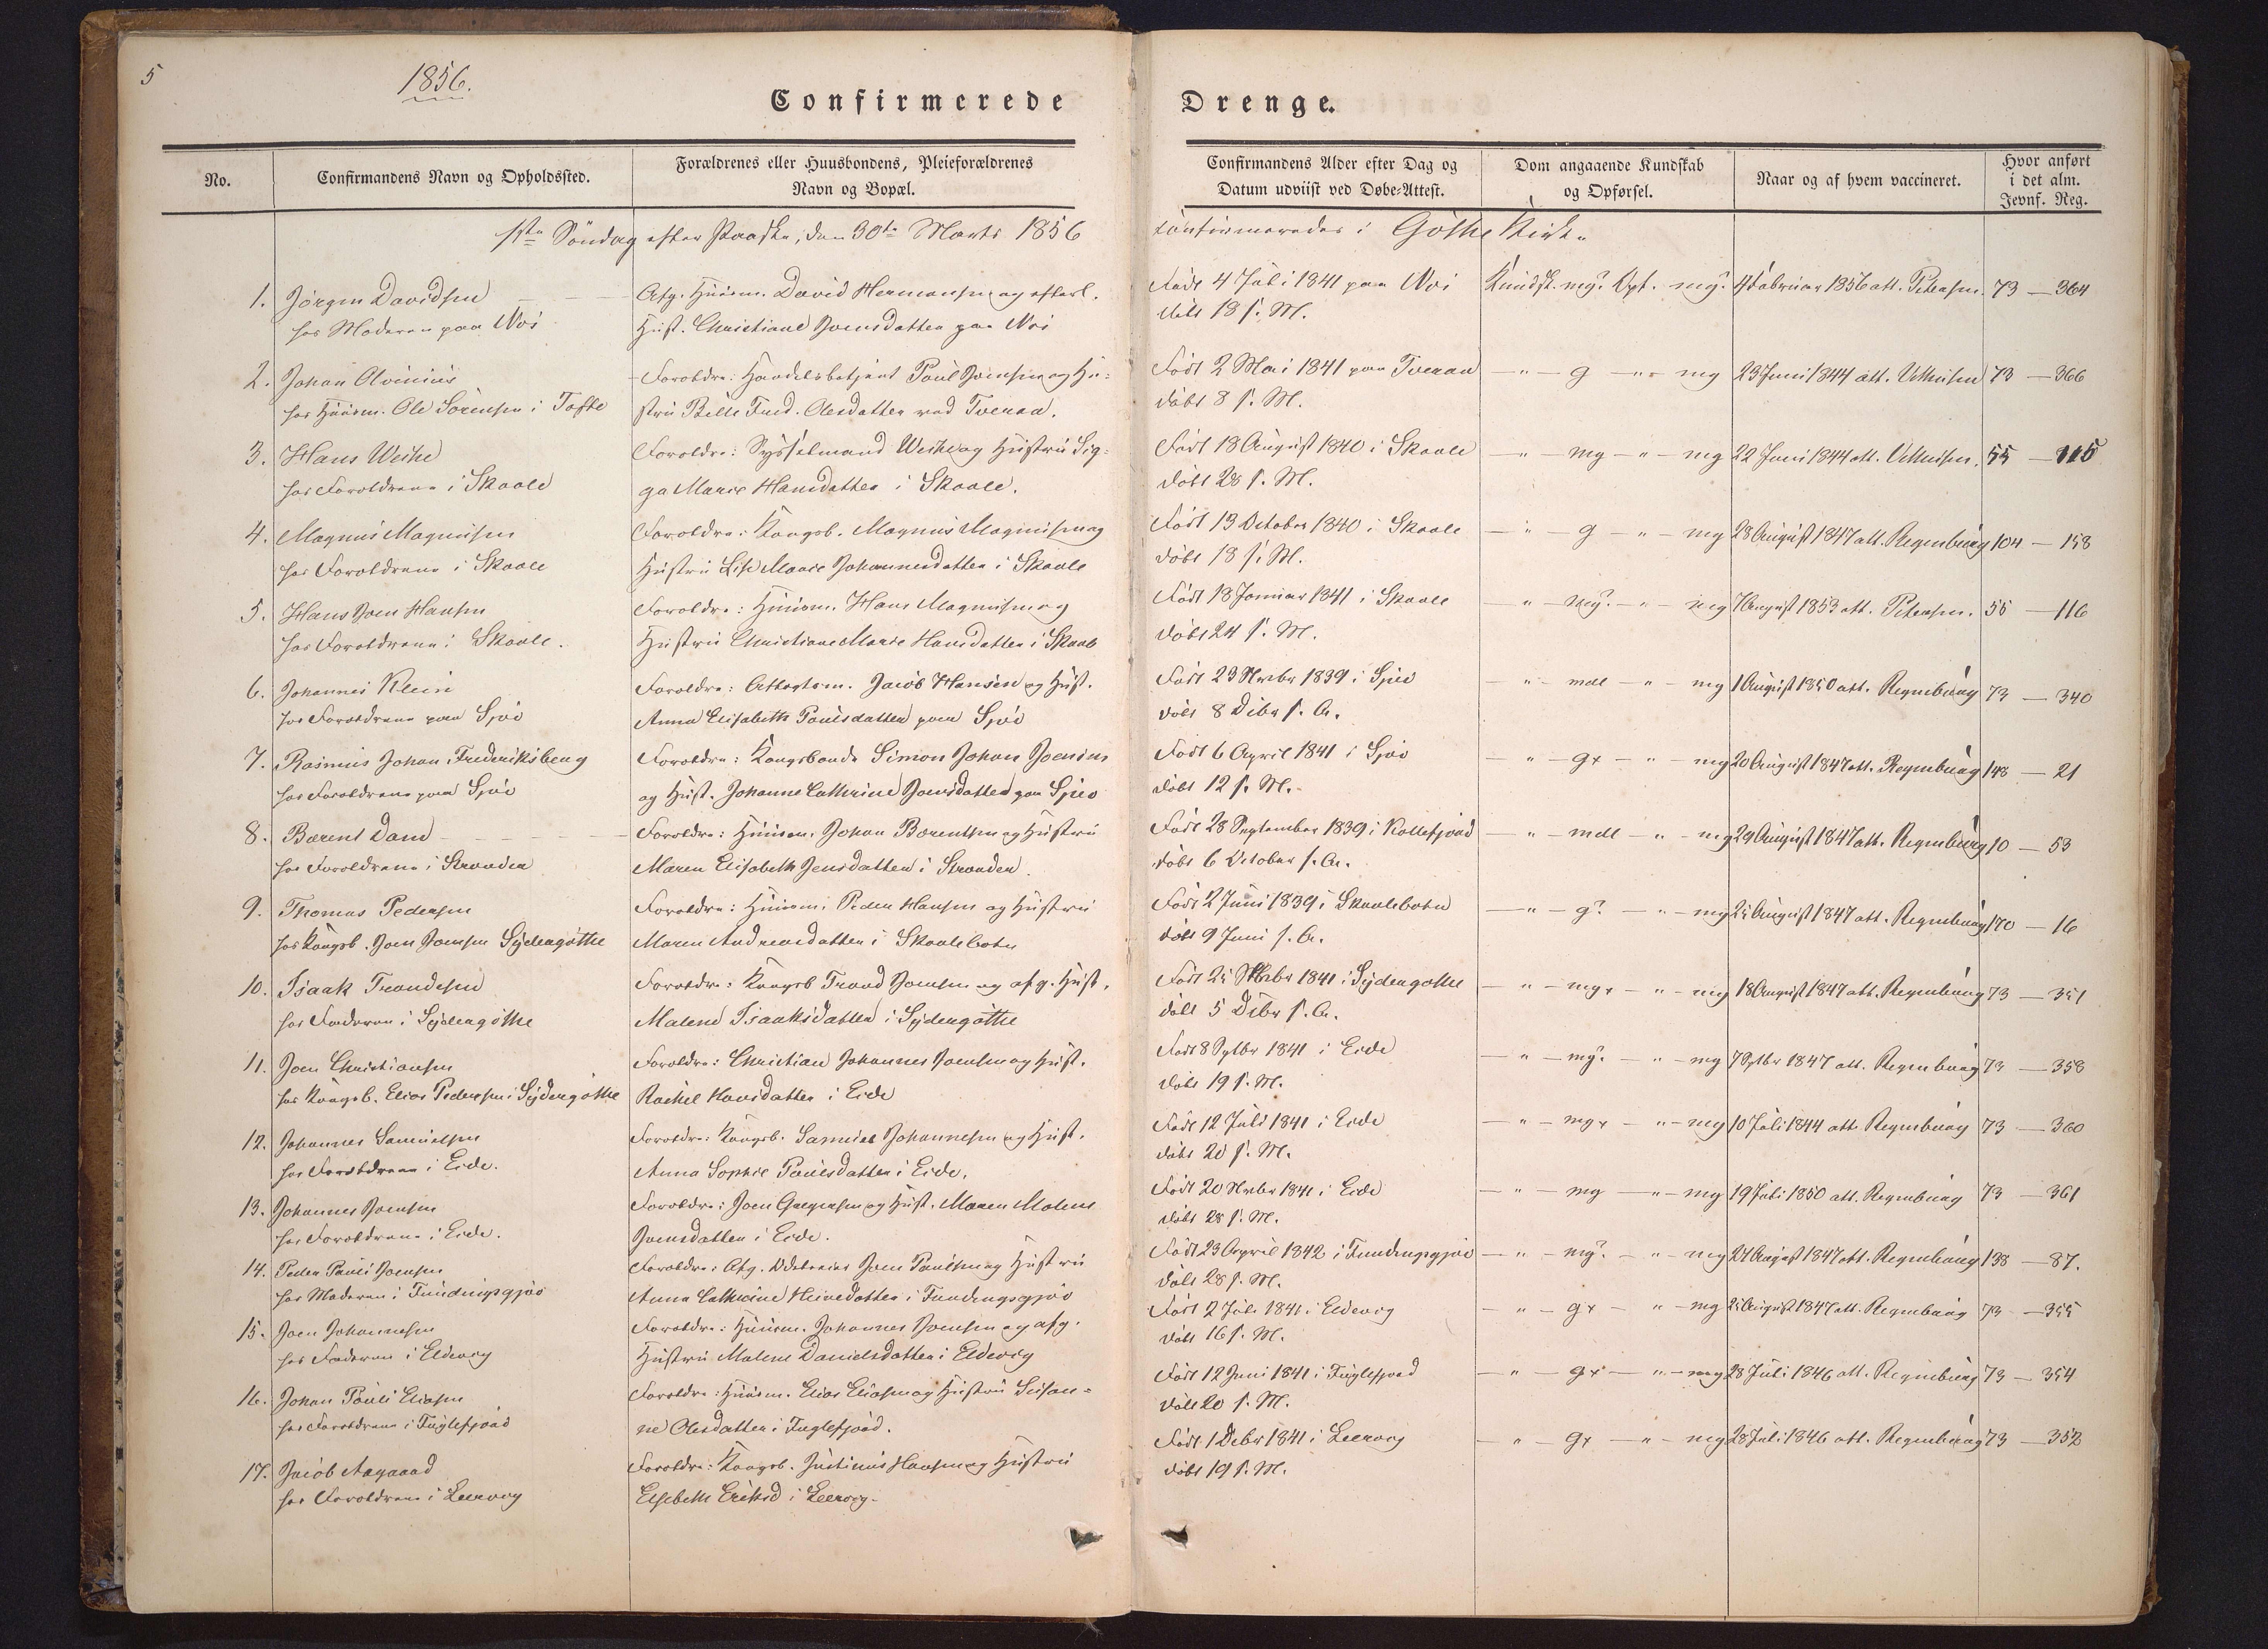 5
1856.
Confirmerede Drenge.
No.
Confirmandens Navn og Opholdssted.
Forældrenes eller Huusbondens, Pleieforældrenes
Navn og Bopæl.
Confirmandens Alder efter Dag og
Datum udviist ved Døbe-Attest.
Dom angaaende Kundskab
og Opførsel.
Naar og af hvem vaccineret.
Hvor anført
i det alm.
Jevnf. Reg.
1ste Söndag efter Paaske, den 30te Marts 1856 confirmeredes i Göthe Kirke
1. Jörgen Davidsen
hos Moderen paa Noi
Afg. Huusm. David Hermansen og efterl.
Hust. Christiane Joensdatter paa Noi
Född 4 Juli 1841 paa Noi
döbt 18 s. M.
Kundsk. mg? Opf. mg?
Februar 1856 att. Petersen.
73 — 364
2. Johan Olvinius
hos Huusm. Ole Sörensen i Tofte
Forældre: Handelsbetjent Poul Joensen og Hu-
stru Bille Fred. Olesdatter ved Tveraa.
Födt 2 Mai 1841 paa Tveraa
döbt 8 s. M.
— " — g — " — mg
23 Juni 1844 att.
73 — 366
3. Hans Weihe
hos Forældrene i Skaale
Forældre: Sysselmand Weihe og Hustru Sig-
ga Marie Hansdatter i Skaale.
Födt 18 August 1840 i Skaale
döbt 28 s. M.
— " — mg — " — mg
22 Juni 1844 att.
55 — 115
4. Magnus Magnusen
hos Forældrene i Skaale
Forældre: Kongsb. Magnus Magnusen og
Hustru Lise Marie Johannesdatter i Skaale
Födt 13 October 1840 i Skaale
döbt 18 s. M.
— " — g — " — mg
28 August 1847 att. Regenburg
104 — 158
5. Hans Joen Hansen
hos Forældrene i Skaale.
Forældre: Huusm. Hans Magnusen og
Hustru Christiane Marie Hansdatter i Skaale
Födt 18 Januar 1841 i Skaale
döbt 24 s. M.
— " — mg? — " — mg
August 1853 att. Petersen.
55 — 116
6. Johannes Klein
hos Forældrene paa Sjöv
Forældre: Jacob Hansen og Hust.
Anna Elisabeth Poulsdatter paa Sjöv
Födt 23 Novbr 1839 i Sjöv
döbt 8 Dcbr s. A.
— " — mdl — " — mg
1 August 1850 att. Regenburg
73 — 340
7. Rasmus Johan Frederiksberg
hos Forældrene paa Sjöv
Forældre: Kongsbonde Simon Johan Joensen
og Hust. Johanne Cathrine Joensdatter paa Sjöv
Födt 6 April 1841 i Sjöv
döbt 12 s. M.
— " — g+ — " — mg
20 August 1847 att. Regenburg
148 — 21
8. Barent Dam
hos Forældrene i Stranden
Forældre: Huusm. Johan Barentsen og Hustru
Maren Elisabeth Jensdatter i Stranden.
Födt 28 September 1839 i Kollefjord
döbt 6 October s. A.
— " — mdl — " — mg
29 August 1847 att. Regenburg
10 — 53
9. Thomas Pedersen
hos Kongsb. Joen Joensen Sydergöthe
Forældre: Huusm. Peder Hansen og Hustru
Maren Andreasdatter i Skaalebotn
Födt 2 Juni 1839 i Skaalebotn
döbt 9 Juni s. A.
— " — g? — " — mg
25 August 1847 att. Regenburg
170 — 16
10. Isaak Trondesen
hos Faderen i Sydergöthe
Forældre: Kongsb Trond Joensen og afg. Hust.
Malene Isaaksdatter i Sydergöthe
Födt 25 Novbr 1841 i Sydergöthe
döbt 5 Dcbr s. A.
— " — mg+ — " — mg
18 August 1847 att. Regenburg
73 — 351
11. Joen Christiansen
hos Kongsb. Elias Pedersen i Sydergöthe
Forældre: Christian Johannes Joensen og Hust.
Rachel Hansdatter i Eide
Födt 8 Sptbr 1841 i Eide
döbt 19 s. M.
— " — mg? — " — mg
7 Sptbr 1847 att. Regenburg
73 — 358
12. Johannes Samuelsen
hos Forældrene i Eide.
Forældre: Kongsb. Samuel Johannesen og Hust.
Anna Sophie Poulsdatter i Eide.
Födt 12 Juli 1841 i Eide
döbt 20 s. M.
— " — mg+ — " — mg
10 Juli 1844 att. Regenburg
73 — 360
13. Johannes Joensen
hos Forældrene i Eide.
Forældre: Joen Gregersen og Hust. Maren Malene
Joensdatter i Eide.
Födt 20 Novbr 1841 i Eide
döbt 28 s. M.
— " — mg — " — mg
19 Juli 1850 att. Regenburg
73 — 361
14. Peder Pauli Joensen
hos Moderen i Fundingsgjov
Forældre: Afg. Joen Poulsen og Hustru
Anna Cathrine Heinedatter i Fundingsgjov
Födt 23 April 1842 i Fundingsgjov
döbt 28 s. M.
— " — mg? — " — mg
24 August 1847 att. Regenburg
138 — 87.
15. Joen Johannesen
hos Faderen i Eldevig
Forældre: Huusm. Johannes Joensen og afg.
Hustru Malene Danielsdatter i Eldevig
Födt 2 Juli 1841 i Eldevig
döbt 16 s. M.
— " — g+ — " — mg
25 August 1847 att. Regenburg
73 — 355
16. Johan Pouli Eliasen
hos Forældrene i Fuglefjord
Forældre: Huusm. Elias Eliasen og Hustru Susan-
ne Olesdatter i Fuglefjord.
Födt 12 Juni 1841 i Fuglefjord
döbt 20 s. M.
— " — g+ — " — mg
28 Juli 1846 att. Regenburg
73 — 354
17. Jacob Aagaard
hos Forældrene i Leervig
Forældre: Kongsb. Justinus Hansen og Hustru
Elsebeth Eriksd i Leervig.
Födt 1 Dcbr 1841 i Leervig
döbt 19 s. M.
— " — g+ — " — mg
28 Juli 1846 att. Regenburg
73 — 352